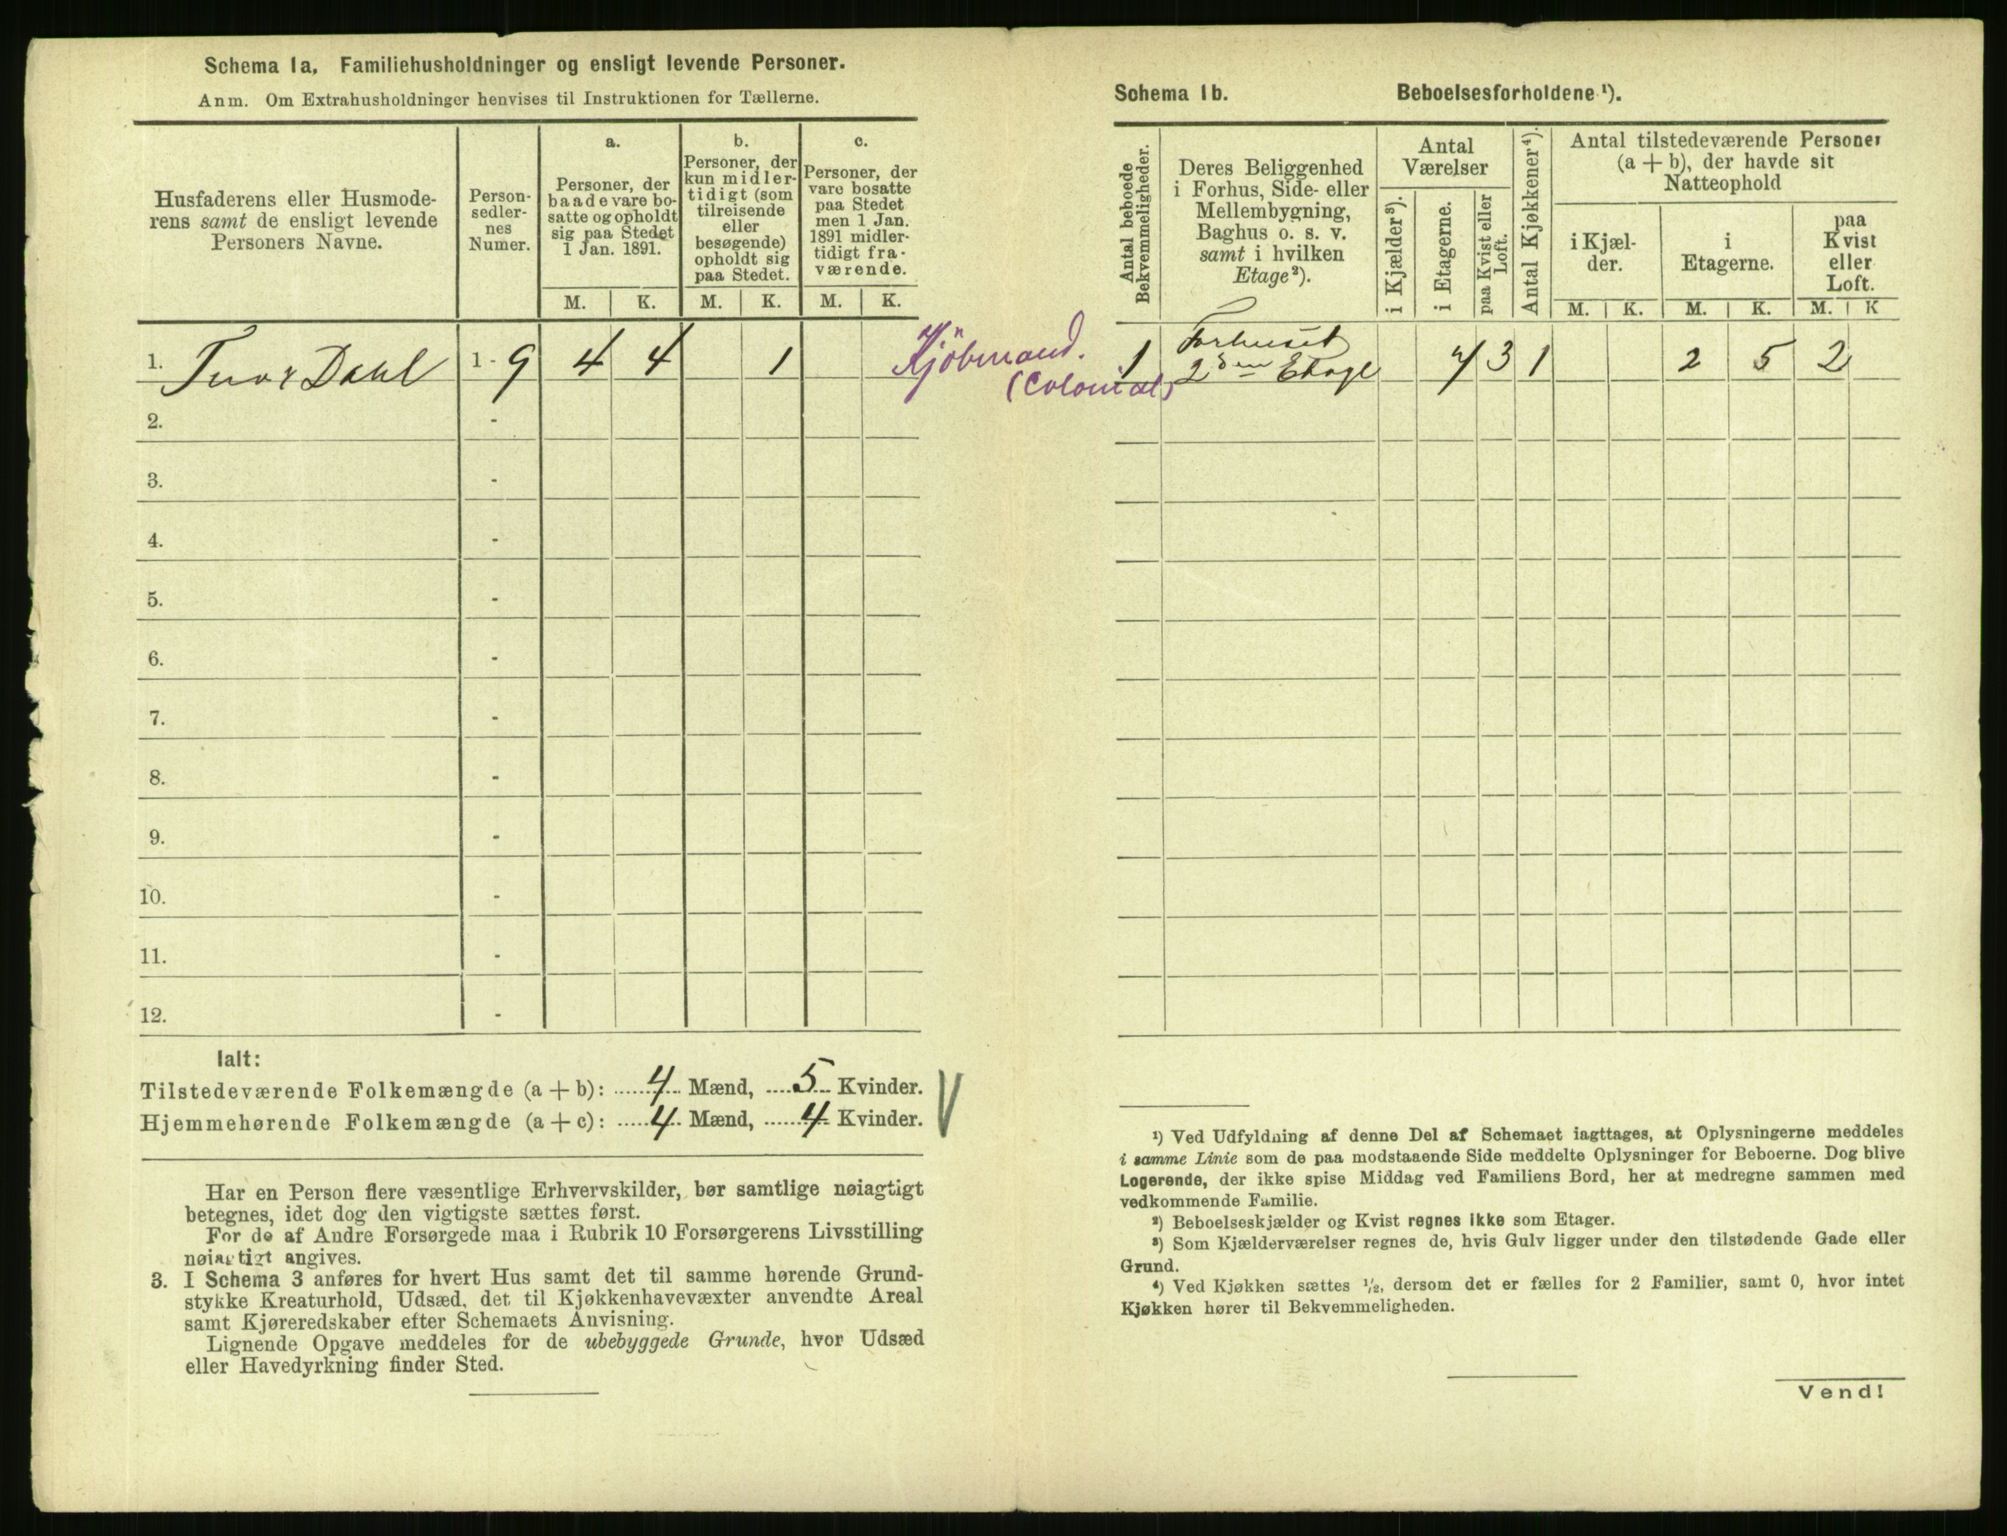 Schema 1a. Familiehusholdninger og ensligt levende Personer.
Anm. Om Extrahusholdninger henvises til Instruktionen for Tællerne.
Husfaderens eller Husmode-
rens samt de ensligt levende
Personers Navne.
Person-
sedler-
nes
Numer.
a.
Personer, der
baade vare bo-
satte og opholdt
sig paa Stedet
1 Jan. 1891.
b.
Personer, der
kun midler-
tidigt (som
tilreisende
eller
besøgende)
opholdt sig
paa Stedet.
c.
Personer, der
vare bosatte
paa Stedet
men 1 Jan.
1891 midler-
tidigt fra-
værende.
M. K. M. K. M. K.
1. Dahl 1 - 9 4 4 1
Kjöbmand.
(Colonial)
2. -
3. -
4. -
5. -
6. -
7. -
8. -
9. -
10. -
11. -
12. -
Ialt:
Tilstedeværende Folkemængde (a + b): 4 Mænd, 5 Kvinder.
Hjemmehørende Folkemængde (a + c): 4 Mænd, 4 Kvinder.
Har en Person flere væsentlige Erhvervskilder, bør samtlige nøiagtigt
betegnes, idet dog den vigtigste sættes først.
For de af Andre Forsørgede maa i Rubrik 10 Forsørgerens Livsstilling
nøiagtigt angives.
3. I Schema 3 anføres for hvert Hus samt det til samme hørende Grund-
stykke Kreaturhold, Udsæd, det til Kjøkkenhavevæxter anvendte Areal
samt Kjøreredskaber efter Schemaets Anvisning.
Lignende Opgave meddeles for de ubebyggede Grunde, hvor Udsæd
eller Havedyrkning finder Sted.
Schema 1b. Beboelsesforholdene ¹).
Antal beboede
Bekvemmeligheder.
Deres Beliggenhed
i Forhus, Side- eller
Mellembygning,
Baghus o. s. v.
samt i hvilken
Etage²).
Antal
Værelser
i Kjælder³).
i Etagerne.
paa Kvist eller
Loft.
Antal Kjøkkener⁴).
Antal tilstedeværende Personer
(a + b), der havde sit
Natteophold
i Kjæl-
der.
i
Etagerne.
paa
Kvist
eller
Loft.
M. K. M. K. M. K
1 Forhuset
2den Etage 4 3 1 2 5 2
¹) Ved Udfyldning af denne Del af Schemaet iagttages, at Oplysningerne meddeles
i samme Linie som de paa modstaaende Side meddelte Oplysninger for Beboerne. Dog blive
Logerende, der ikke spise Middag ved Familiens Bord, her at medregne sammen med
vedkommende Familie.
²) Beboelseskjælder og Kvist regnes ikke som Etager.
³) Som Kjælderværelser regnes de, hvis Gulv ligger under den tilstødende Gade eller
Grund.
⁴) Ved Kjøkken sættes ½, dersom det er fælles for 2 Familier, samt 0, hvor intet
Kjøkken hører til Bekvemmeligheden.
Vend!